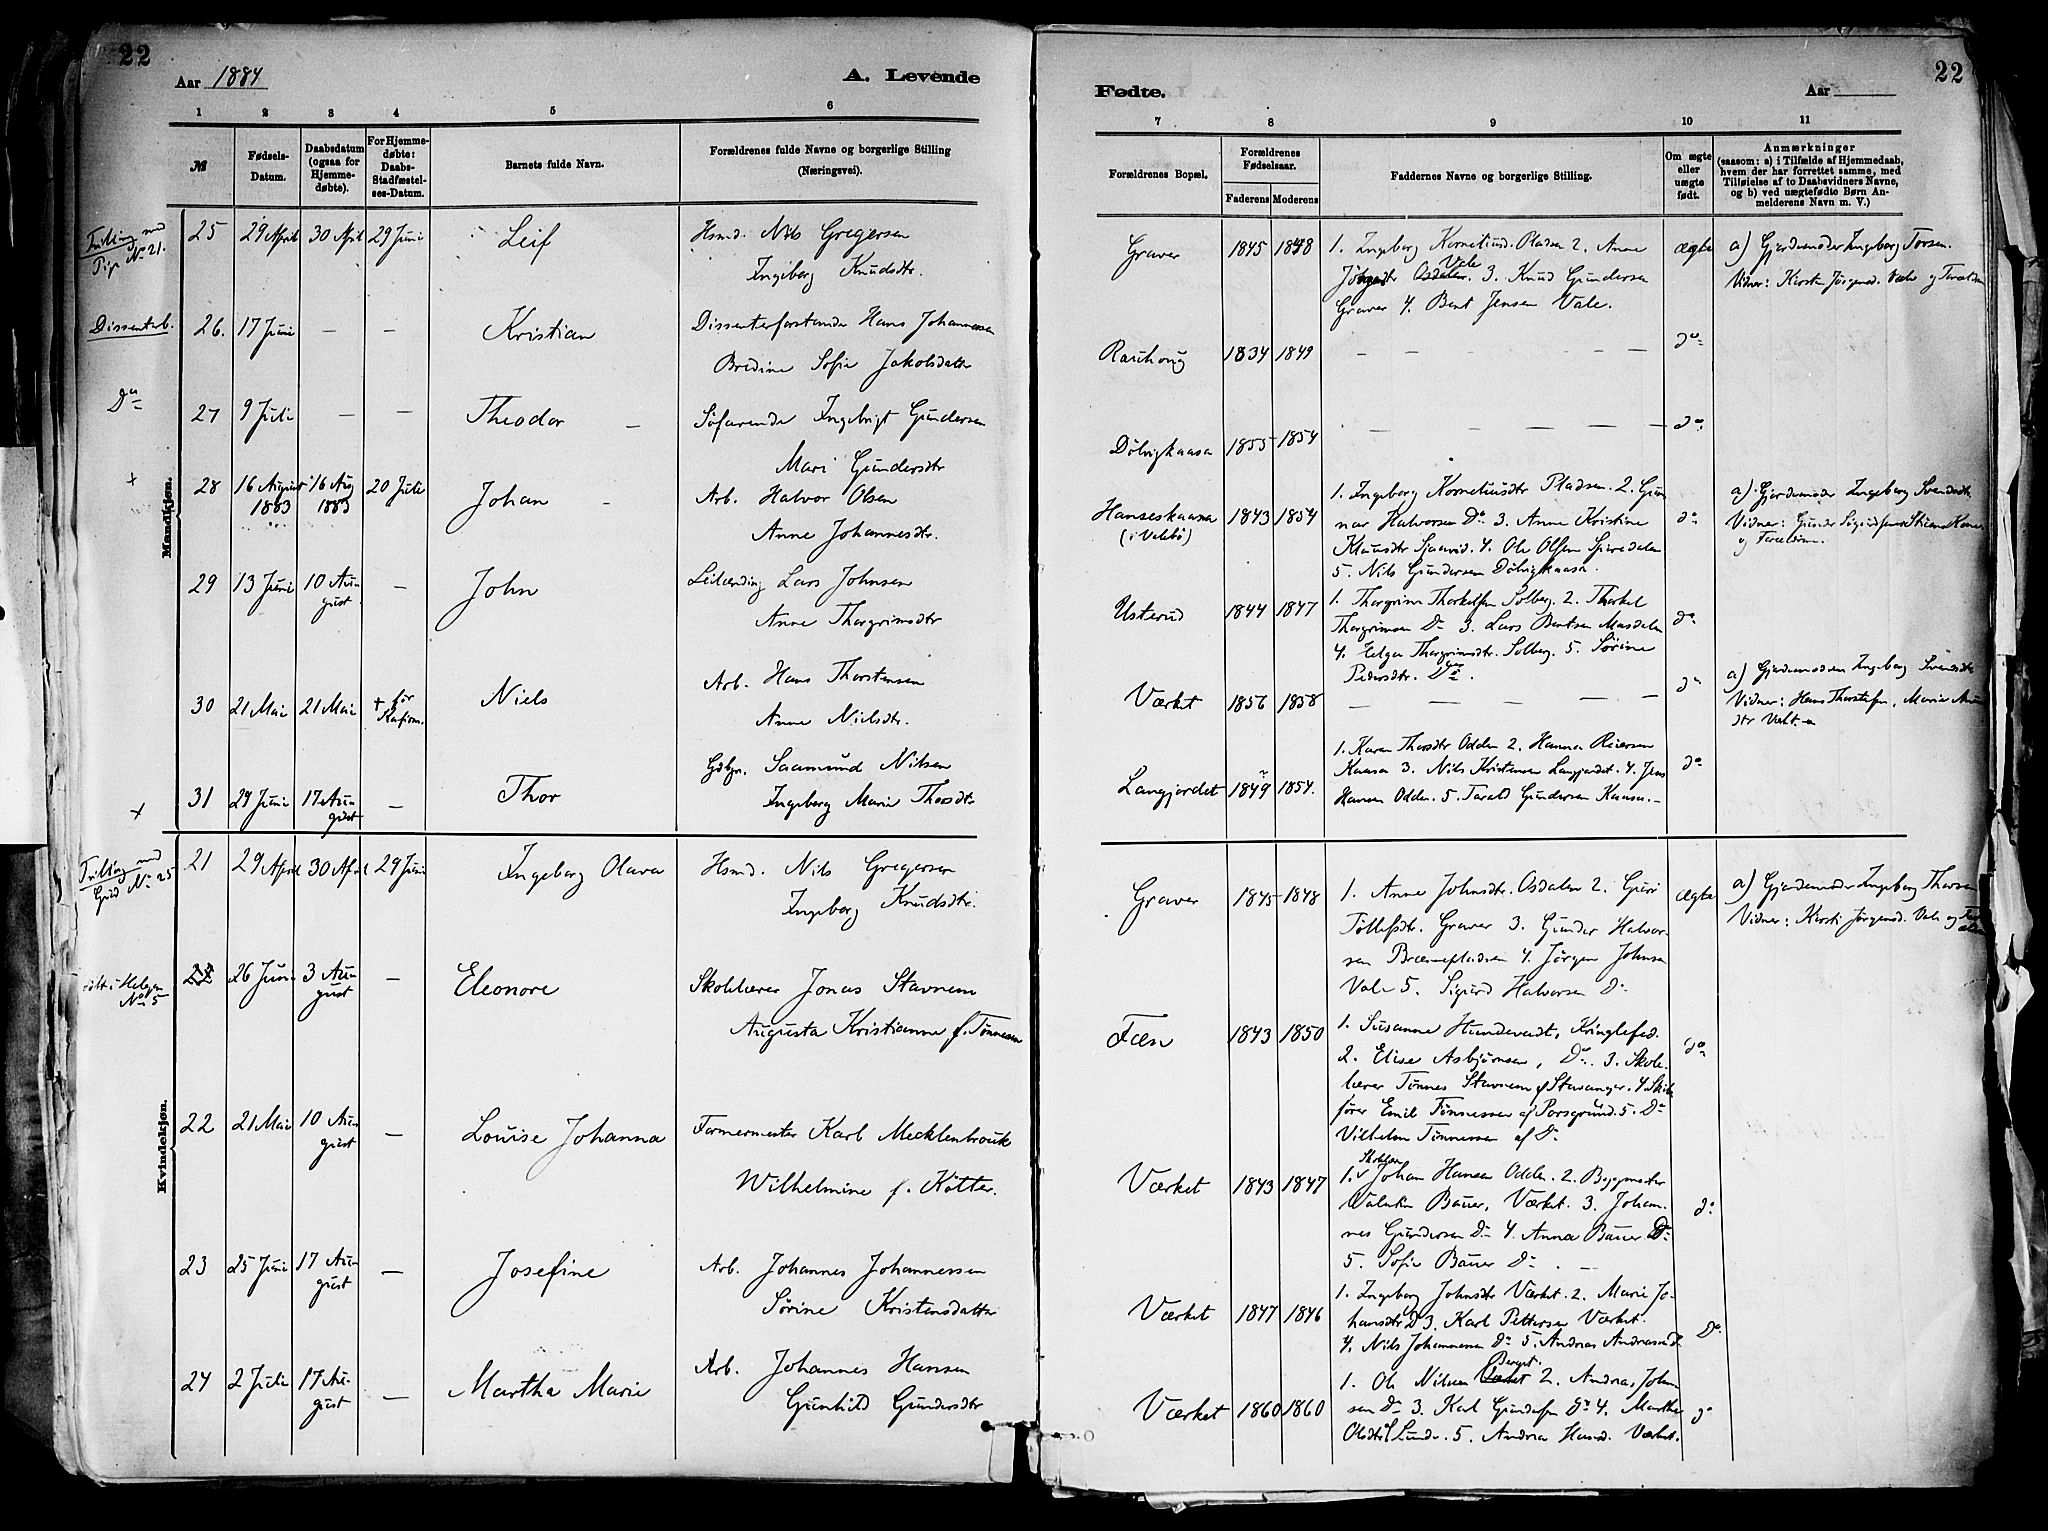 22
Aar 1884
A. Levende
1 2 3 4 5 6
№
Fødsels-Datum.
Daabsdatum (ogsaa for Hjemme-døbte).
For Hjemme-døbte: Daabs-Stadfæstel-ses-Datum.
Barnets fulde Navn.
Forældrenes fulde Navne og borgerlige Stilling
(Næringsvei).
Mandkjøn.
Trilling med
Pige No 21.
25 29 April 30 April 29 Juni Leif Hsmd. Nils Gregersen
Ingeborg Knudsdtr.
Dissenterb.
26. 17 Juni — — Kristian Dissenterforstander Hans Johannessen
Bredine Sofie Jakobsdatter
Do
27 9 Juli — — Theodor Søfarende Ingebrigt Gundersen
Mari Gundersdtr
+
28 16 August 1883 16 Aug 1883 20 Juli Johan Arb. Halvor Olsen
Anne Johannesdtr.
29 13 Juni 10 August — John Leilænding Lars Johnsen
Anne Thorgrimsdtr
30 21 Mai 21 Mai + før Konfirm. Niels Arb. Hans Thorstensen
Anne Nielsdtr.
+
31 24 Juni 17 August — Thor Gdbr. Saamund Nilsen
Ingeborg Marie Thorsdtr
Kvindekjøn.
Trilling med
Gut No 25
21 29 April 30 April 29 Juni Ingeborg Olava Hsmd. Nils Gregersen
Ingeborg Knudsdtr.
No 5
26 Juni 3 August — Eleonore Skolelærer Jonas Stavnem
Augusta Kristianne f. Tønnesen
22 21 Mai 10 August — Louise Johanna Formermester Karl Mecklenbrouk
Wilhelmine f. Kötter.
23 25 Juni 17 August — Josefine Arb. Johannes Johannessen
Sørine Kristensdatter
24 2 Juli 17 August — Martha Marie Arb. Johannes Hansen
Gunhild Gundersdtr
Fødte.
Aar
22
7 8 9 10 11
Forældrenes Bopæl.
Forældrenes Fødselsaar.
Faderens Moderens
Faddernes Navne og borgerlige Stilling.
Om ægte eller uægte født.
Anmærkninger
(saasom: a) i Tilfælde af Hjemmedaab,
hvem der har forrettet samme, med
Tilføielse af to Daabsvidners Navne,
og b) ved uægtefødte Børn An-
melderens Navn m. V.)
Graver 1845 1848 1. Ingeborg Korneliusd. Pladsen 2. Anne ægte a) Gjordemoder Ingeborg Torsen.
Vale 3. Knud Gundersen Vidner: Kirsten Jørgensd. Vale og
Graver 4. Bent Jensen Vale.
Rauhoug 1834 1849 — — — — — do
Dölvigkaasa 1855 1854 — — — — — do
Hanseskaasa
(i Valebø) 1843 1854 1. Ingeborg Korneliusdtr Pladsen. 2. Gun-
nar Halvorsen Do 3. Anne Kristine
Klausdtr 4. Ole Olsen
5. Nils Gundersen Dölvigkaasa.
do a) Gjordemoder Ingeborg Svendsdtr
Vidner:
og Forældrene.
Usterud 1844 1847 1. Thorgrim Thorkelsen Solberg. 2. Thorkel
Thorgrimsen Do 3. Lars Bentsen Masdalen
4. Helga Thorgrimsdtr. Solberg. 5. Sørine
Pedersdtr. Do.
do
Værket 1856 1858 — — — do a) Gjordemoderen Ingeborg Svendsdtr
Vidner: Hans Thorstensen, Marie
Langjordet 1849 1854. 1. Karen Thorsdtr Odden 2. Hanna Reiersen
Kaasa 3. Nils Kristensen Langjordet. 4. Jens
Hansen Odden. 5. Tarald Gundersen Kaasa.
do
Graver 1845 1848 1. Anne Johnsdtr. Osdalen 2. Guri
Tollefsdtr. Graver 3. Gunder Halvor-
sen Brænnepladsen 4. Jørgen Johnsen
Vale 5. Sigurd Halvorsen Do
ægte a) Gjordemoder Ingeborg Thorsen
Vidner: Kirsti Jørgensd. Vale og
Fæn 1843 1850 1. Susanne Hundevadt, Kringlefed.
2. Elise Asbjörnsen, Do. 3. Skole-
lærer Tönnes Stavnem af Stavanger. 4. Skibs-
fører Emil Tønnessen af Porsgrund. 5. Do
Vilhelm Tønnessen af Do
do
Værket 1843 1847 1. Skolelær Johan Hansen Odden. 2. Bygmester
Valentin Bauer, Værket. 3. Johan-
nes Gundersen Do 4. Anna Bauer Do
5. Sofie Bauer Do.
do
Værket 1847 1846 1. Ingeborg Johnsdtr Værket. 2. Marie Jo-
hansdtr Do 3. Karl Pettersen Værket.
4. Nils Johannesen Do 5. Andreas
Do
Værket 1860 1860 1. Ole Nilsen Berget. 2. Andreas John-
sen Do 3. Karl Gundersen Do 4. Marthe
Olsdtr Lunde. 5. Andrea Hansd. Værket.
do